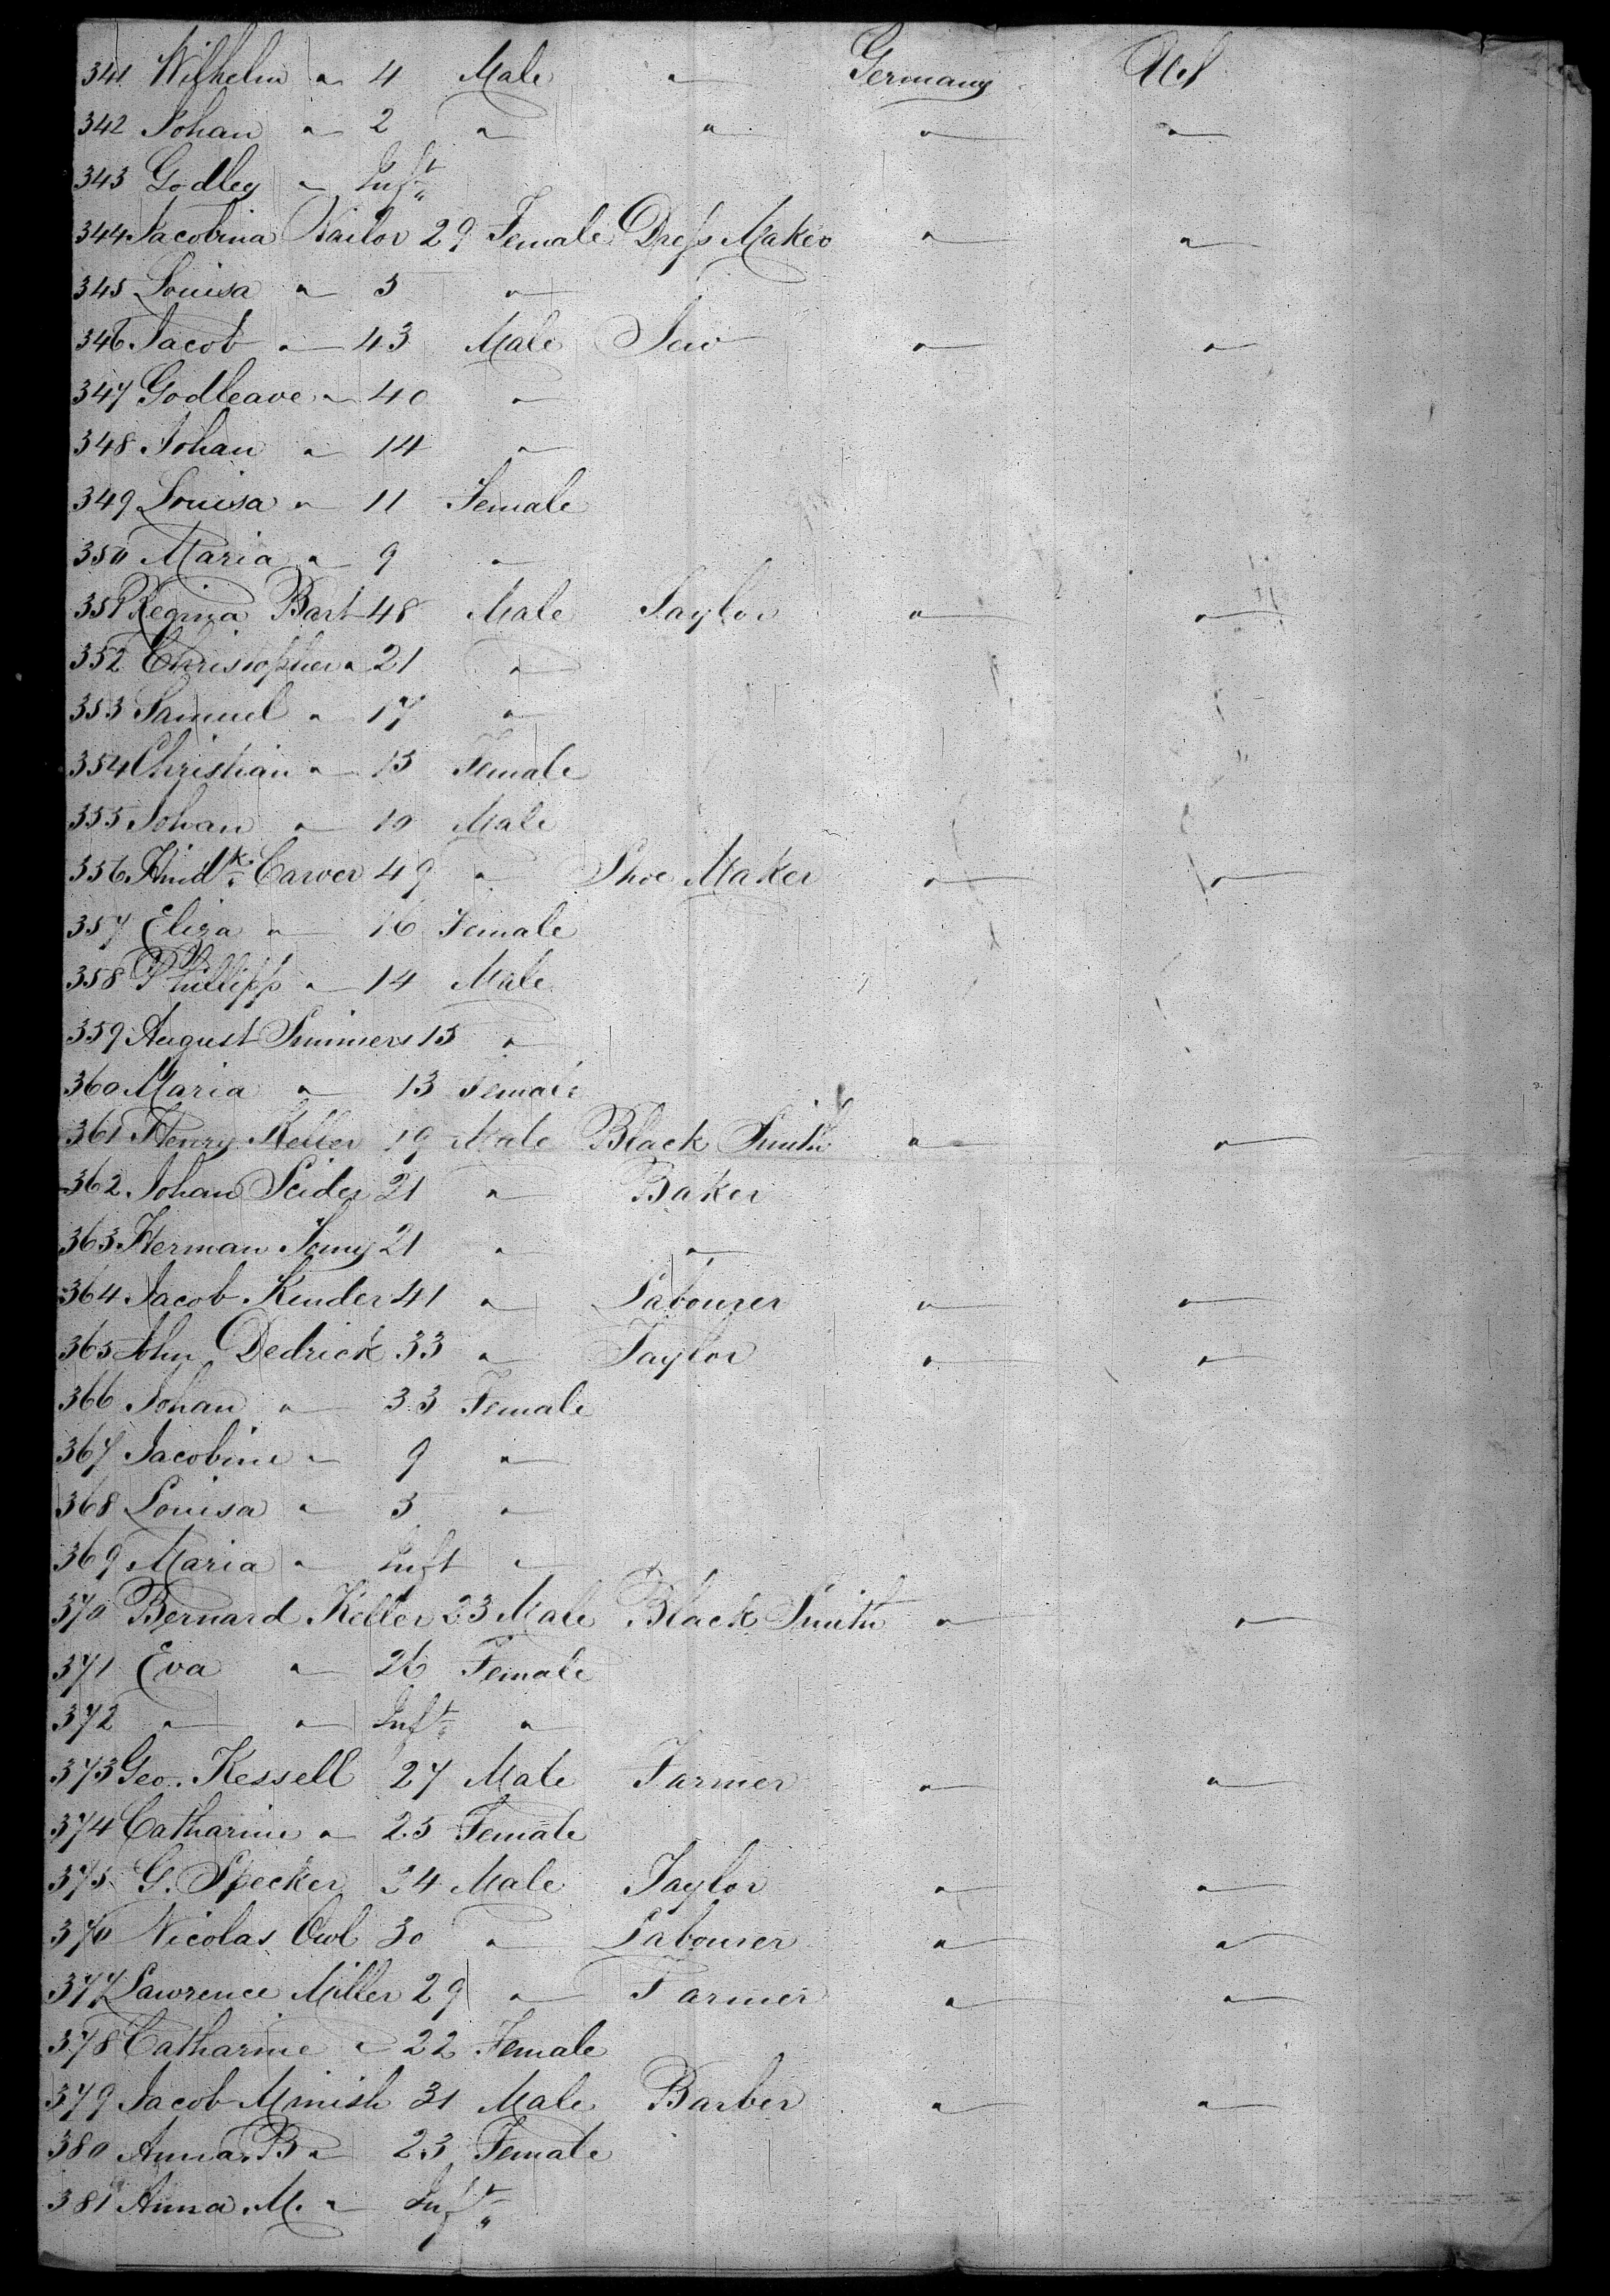 341 Wilhelm " 4 Male " Germany U.S
342 Johan " 2 " " " "
343 Godley " Inft
344 Jacobina Nailor 29 Female Dress Maker " "
345 Louisa " 5 "
346 Jacob " 43 Male " "
347 Godleave " 40 "
348 Johan " 14 "
349 Louisa " 11 Female
350 Maria " 9 "
351 Regina Bart 48 Male Taylor " "
352 Christopher " 21 "
353 Samuel " 17 "
354 Christian " 15 Female
355 Johan " 10 Male
356 Hindk Carver 49 " Shoe Maker " "
357 Eliza " 16 Female
358 Phillipp " 14 Male
359 August Simmers 15 "
360 Maria " 13 Female
361 Henry Keller 19 Male Black Smith " "
362 Johan Seider 21 " Baker
363 Herman 21 " "
364 Jacob Kinder 41 " Labourer " "
365 John Dedrick 33 " Taylor " "
366 Johan " 33 Female
367 Jacobine " 9 "
368 Louisa " 5 "
369 Maria " Inft "
370 Bernard Keller 23 Male Black Smith " "
371 Eva " 26 Female
372 " " Inft "
373 Geo. Kessell 27 Male Farmer " "
374 Catharine " 25 Female
375 G. Specker 24 Male Taylor " "
376 Nicolas Owl 30 " Labourer " "
377 Lawrence Miller 29 " Farmer " "
378 Catharine " 22 Female
379 Jacob Minish 31 Male Barber " "
380 Anna. B " 23 Female
381 Anna. M. " Inft